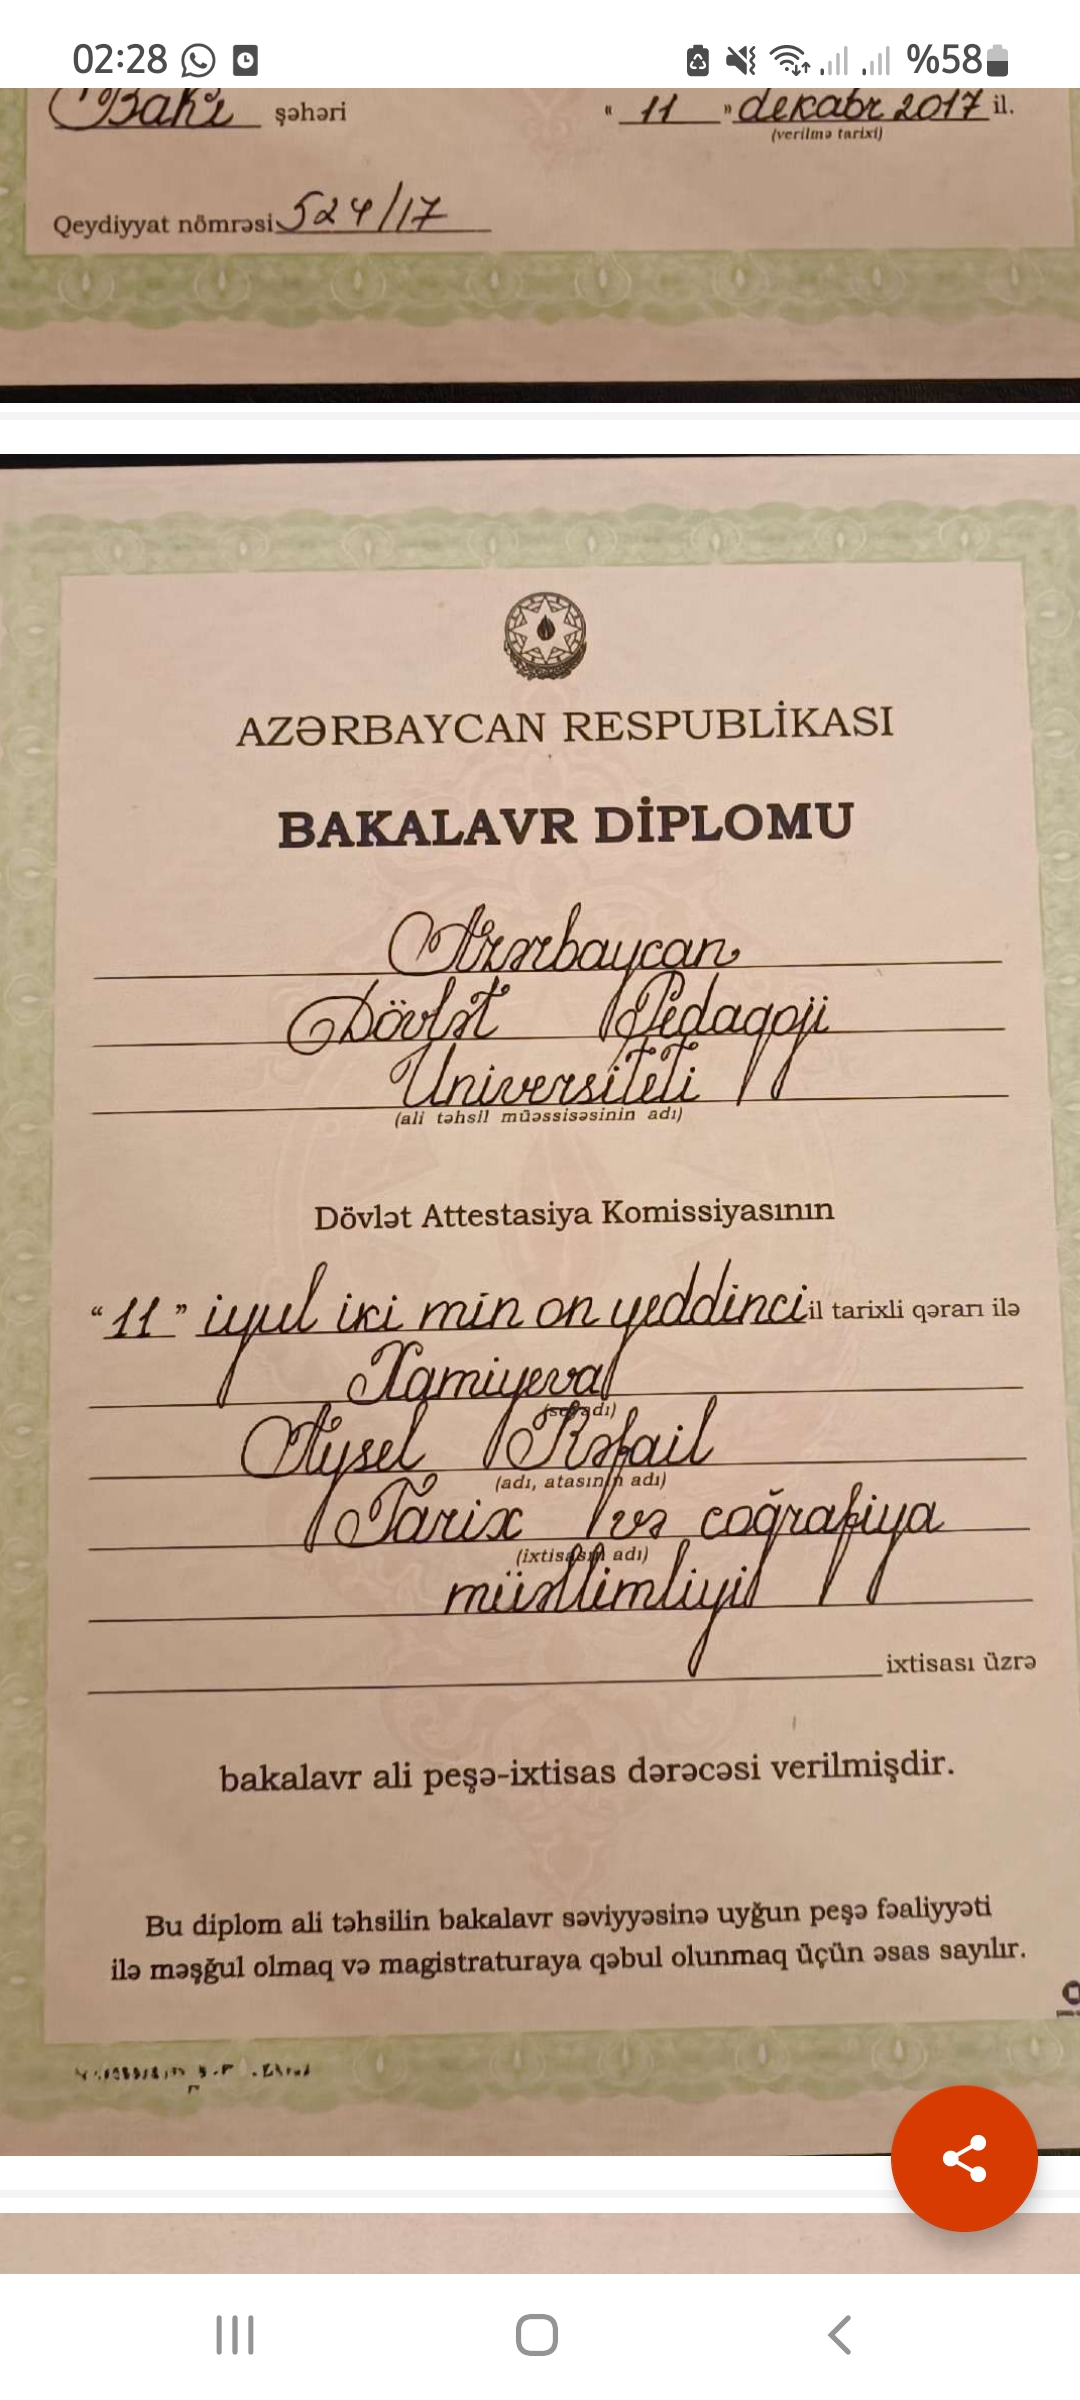 02:28
%58
Bakı şəhəri
" 11 " dekabr 2017 il.
(verilmə tarixi)
Qeydiyyat nömrəsi 524/17
AZƏRBAYCAN RESPUBLİKASI
BAKALAVR DİPLOMU
Azərbaycan
Dövlət Pedaqoji
Universiteti
(ali təhsil müəssisəsinin adı)
Dövlət Attestasiya Komissiyasının
“ 11 ” iyul iki min on yeddinci il tarixli qərarı ilə
Xamiyeva
(soyadı)
Aysel Rəfail
(adı, atasının adı)
Tarix və coğrafiya
(ixtisasın adı)
müəllimliyi
ixtisası üzrə
bakalavr ali peşə-ixtisas dərəcəsi verilmişdir.
Bu diplom ali təhsilin bakalavr səviyyəsinə uyğun peşə fəaliyyəti
ilə məşğul olmaq və magistraturaya qəbul olunmaq üçün əsas sayılır.